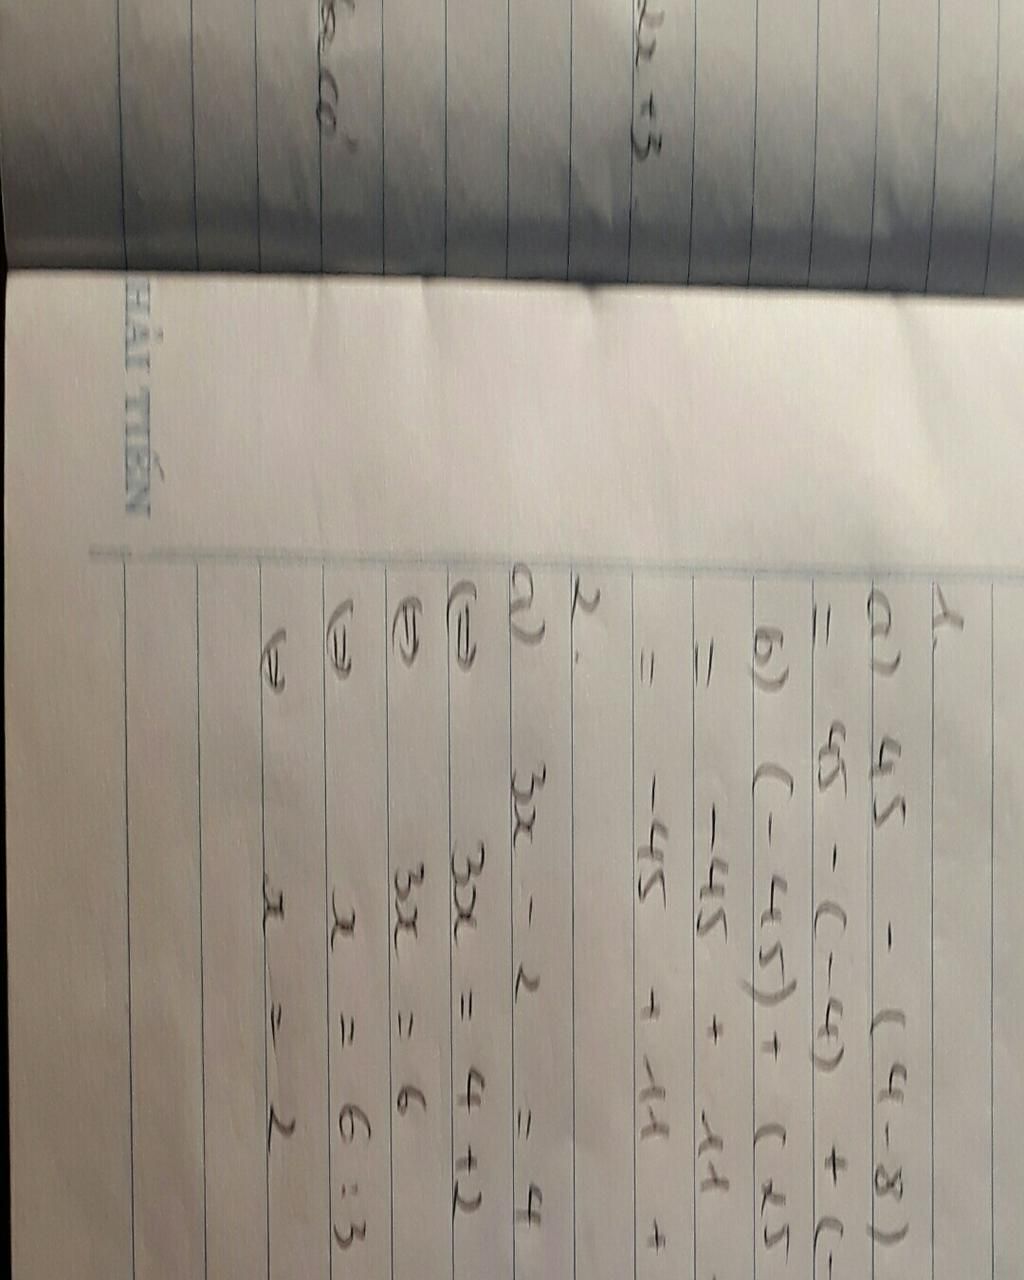 2x + 3
có
HẢI TIẾN
1.
a) 45 - (4 - 8)
= 45 - (-4) + (-
b) (-45) + (15
= -45 + 11
= -45 + 11 +
2.
a) 3x - 2 = 4
⇔ 3x = 4 + 2
⇔ 3x = 6
⇔ x = 6 : 3
⇔ x = 2